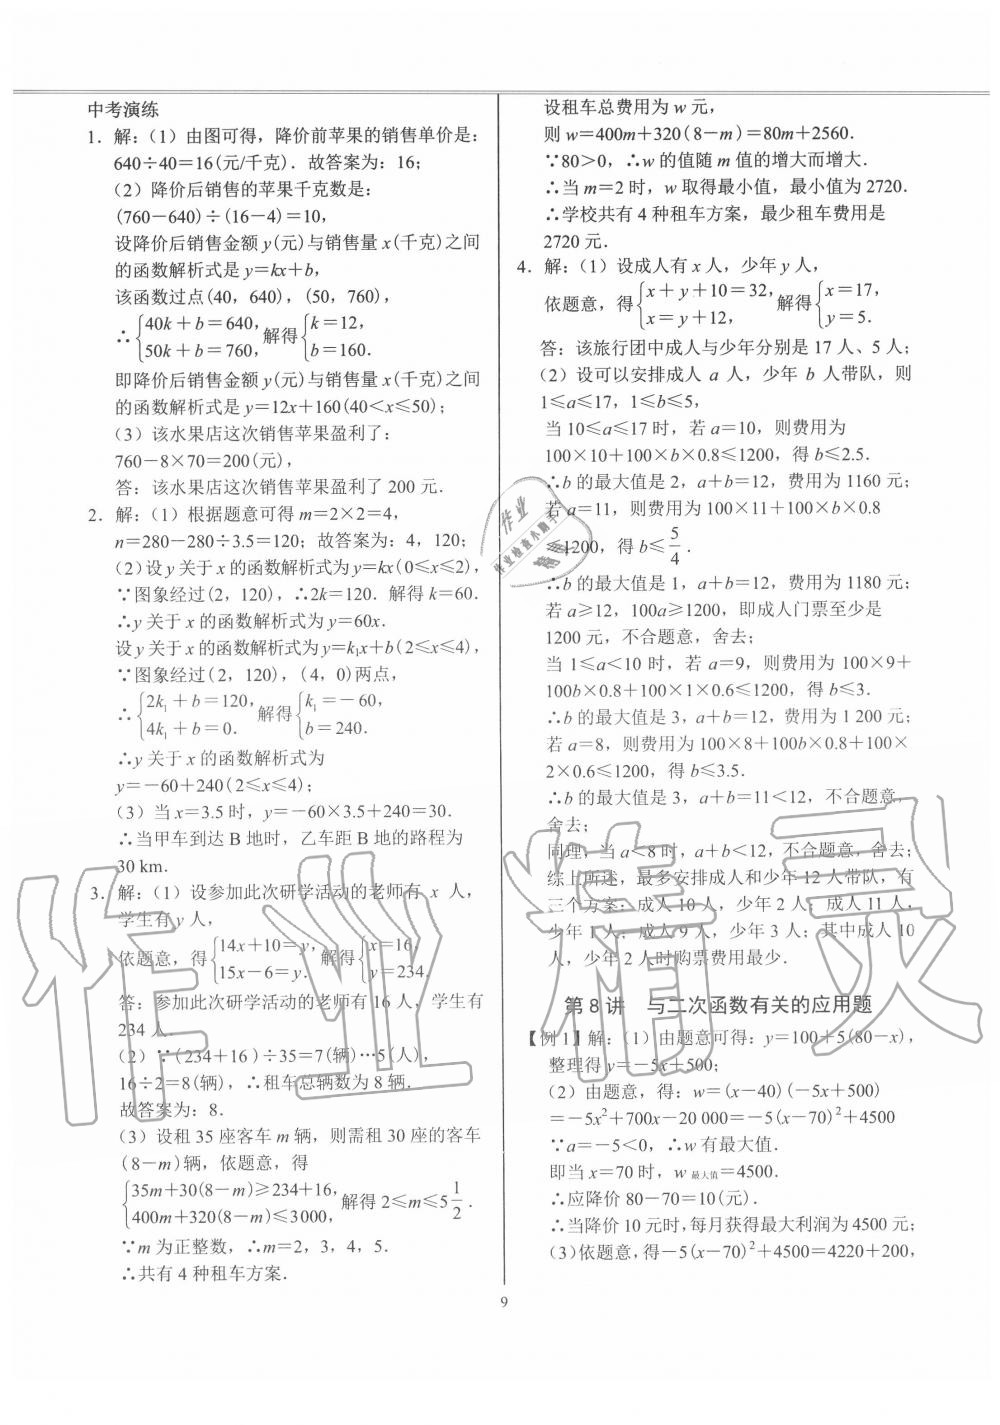 中考演练
1. 解：(1) 由图可得，降价前苹果的销售单价是：
640÷40＝16(元/千克)．故答案为：16；
(2) 降价后销售的苹果千克数是：
(760－640)÷(16－4)＝10，
设降价后销售金额 y(元)与销售量 x(千克)之间
的函数解析式是 y＝kx＋b，
该函数过点(40，640)，(50，760)，
∴{40k＋b＝640, 50k＋b＝760, 解得{k＝12, b＝160.
即降价后销售金额 y(元)与销售量 x(千克)之间
的函数解析式是 y＝12x＋160(40＜x≤50)；
(3) 该水果店这次销售苹果盈利了：
760－8×70＝200(元)，
答：该水果店这次销售苹果盈利了 200 元．
2. 解：(1) 根据题意可得 m＝2×2＝4，
n＝280－280÷3.5＝120；故答案为：4，120；
(2) 设 y 关于 x 的函数解析式为y＝kx(0≤x≤2)，
∵图象经过(2，120)，∴2k＝120．解得 k＝60.
∴y 关于 x 的函数解析式为 y＝60x.
设 y 关于 x 的函数解析式为 y＝k₁x＋b(2≤x≤4)，
∵图象经过(2，120)，(4，0)两点，
∴{2k₁＋b＝120, 4k₁＋b＝0. 解得{k₁＝－60, b＝240.
∴y 关于 x 的函数解析式为
y＝－60＋240(2≤x≤4)；
(3) 当 x＝3.5 时，y＝－60×3.5＋240＝30.
∴当甲车到达 B 地时，乙车距 B 地的路程为
30 km.
3. 解：(1) 设参加此次研学活动的老师有 x 人，
学生有 y 人，
依题意，得{14x＋10＝y, 15x－6＝y. 解得{x＝16, y＝234.
答：参加此次研学活动的老师有 16 人，学生有
234 人．
(2) ∵(234＋16)÷35＝7(辆)…5(人)，
16÷2＝8(辆)，∴租车总辆数为 8 辆．
故答案为：8.
(3) 设租 35 座客车 m 辆，则需租 30 座的客车
(8－m)辆，依题意，得
{35m＋30(8－m)≥234＋16, 400m＋320(8－m)≤3000, 解得 2≤m≤5 1/2.
∵m 为正整数，∴m＝2，3，4，5.
∴共有 4 种租车方案．
设租车总费用为 w 元，
则 w＝400m＋320(8－m)＝80m＋2560.
∵80＞0，∴w 的值随 m 值的增大而增大．
∴当 m＝2 时，w 取得最小值，最小值为 2720.
∴学校共有 4 种租车方案，最少租车费用是
2720 元．
4. 解：(1) 设成人有 x 人，少年 y 人，
依题意，得{x＋y＋10＝32, x＝y＋12, 解得{x＝17, y＝5.
答：该旅行团中成人与少年分别是 17 人、5 人；
(2) 设可以安排成人 a 人，少年 b 人带队，则
1≤a≤17，1≤b≤5，
当 10≤a≤17 时，若 a＝10，则费用为
100×10＋100×b×0.8≤1200，得 b≤2.5.
∴b 的最大值是 2，a＋b＝12，费用为 1160 元；
若 a＝11，则费用为 100×11＋100×b×0.8
≤1200，得 b≤5/4.
∴b 的最大值是 1，a＋b＝12，费用为 1180 元；
若 a≥12，100a≥1200，即成人门票至少是
1200 元，不合题意，舍去；
当 1≤a＜10 时，若 a＝9，则费用为 100×9＋
100b×0.8＋100×1×0.6≤1200，得 b≤3.
∴b 的最大值是 3，a＋b＝12，费用为 1 200 元；
若 a＝8，则费用为 100×8＋100b×0.8＋100×
2×0.6≤1200，得 b≤3.5.
∴b 的最大值是 3，a＋b＝11＜12，不合题意，
舍去；
同理，当 a＜8 时，a＋b＜12，不合题意，舍去；
综上所述，最多安排成人和少年 12 人带队，有
三个方案：成人 10 人，少年 2 人；成人 11 人，
少年 1 人；成人 9 人，少年 3 人；其中成人 10
人，少年 2 人时购票费用最少．
第 8 讲 与二次函数有关的应用题
【例 1】解：(1) 由题意可得：y＝100＋5(80－x)，
整理得 y＝－5x＋500；
(2) 由题意，得：w＝(x－40)(－5x＋500)
＝－5x²＋700x－20 000＝－5(x－70)²＋4500
∵a＝－5＜0，∴w 有最大值．
即当 x＝70 时，w最大值＝4500.
∴应降价 80－70＝10(元)．
∴当降价 10 元时，每月获得最大利润为 4500 元；
(3) 依题意，得－5(x－70)²＋4500＝4220＋200，
9
作业
作业检查小助手
精灵
作业精灵